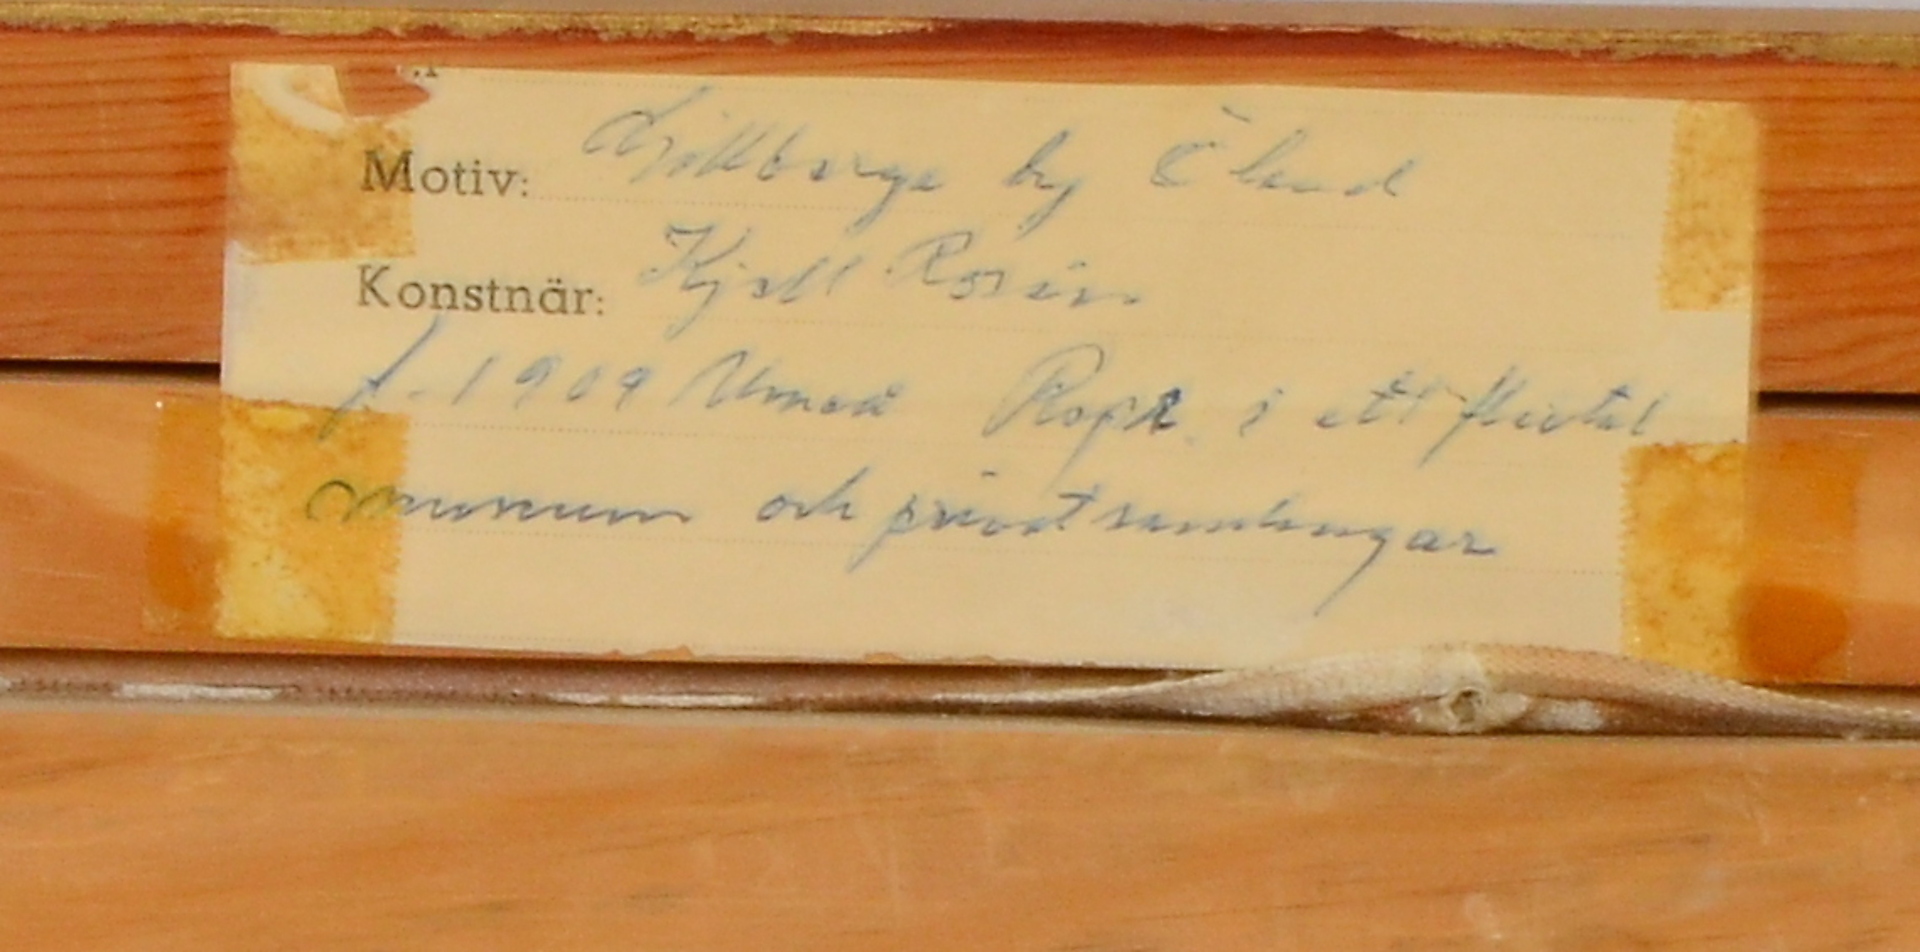 Motiv: Gillberga by Öland
Konstnär: Kjell Rosén
f. 1909 Umeå Repr. i ett flertal
museum och privatsamlingar